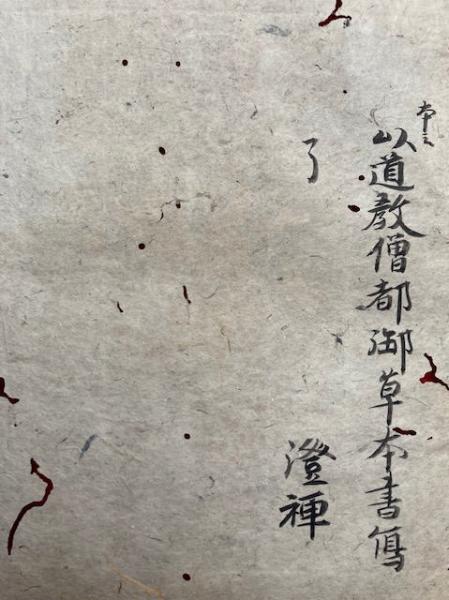 本云
以道教僧都御草本書寫
了
澄禅